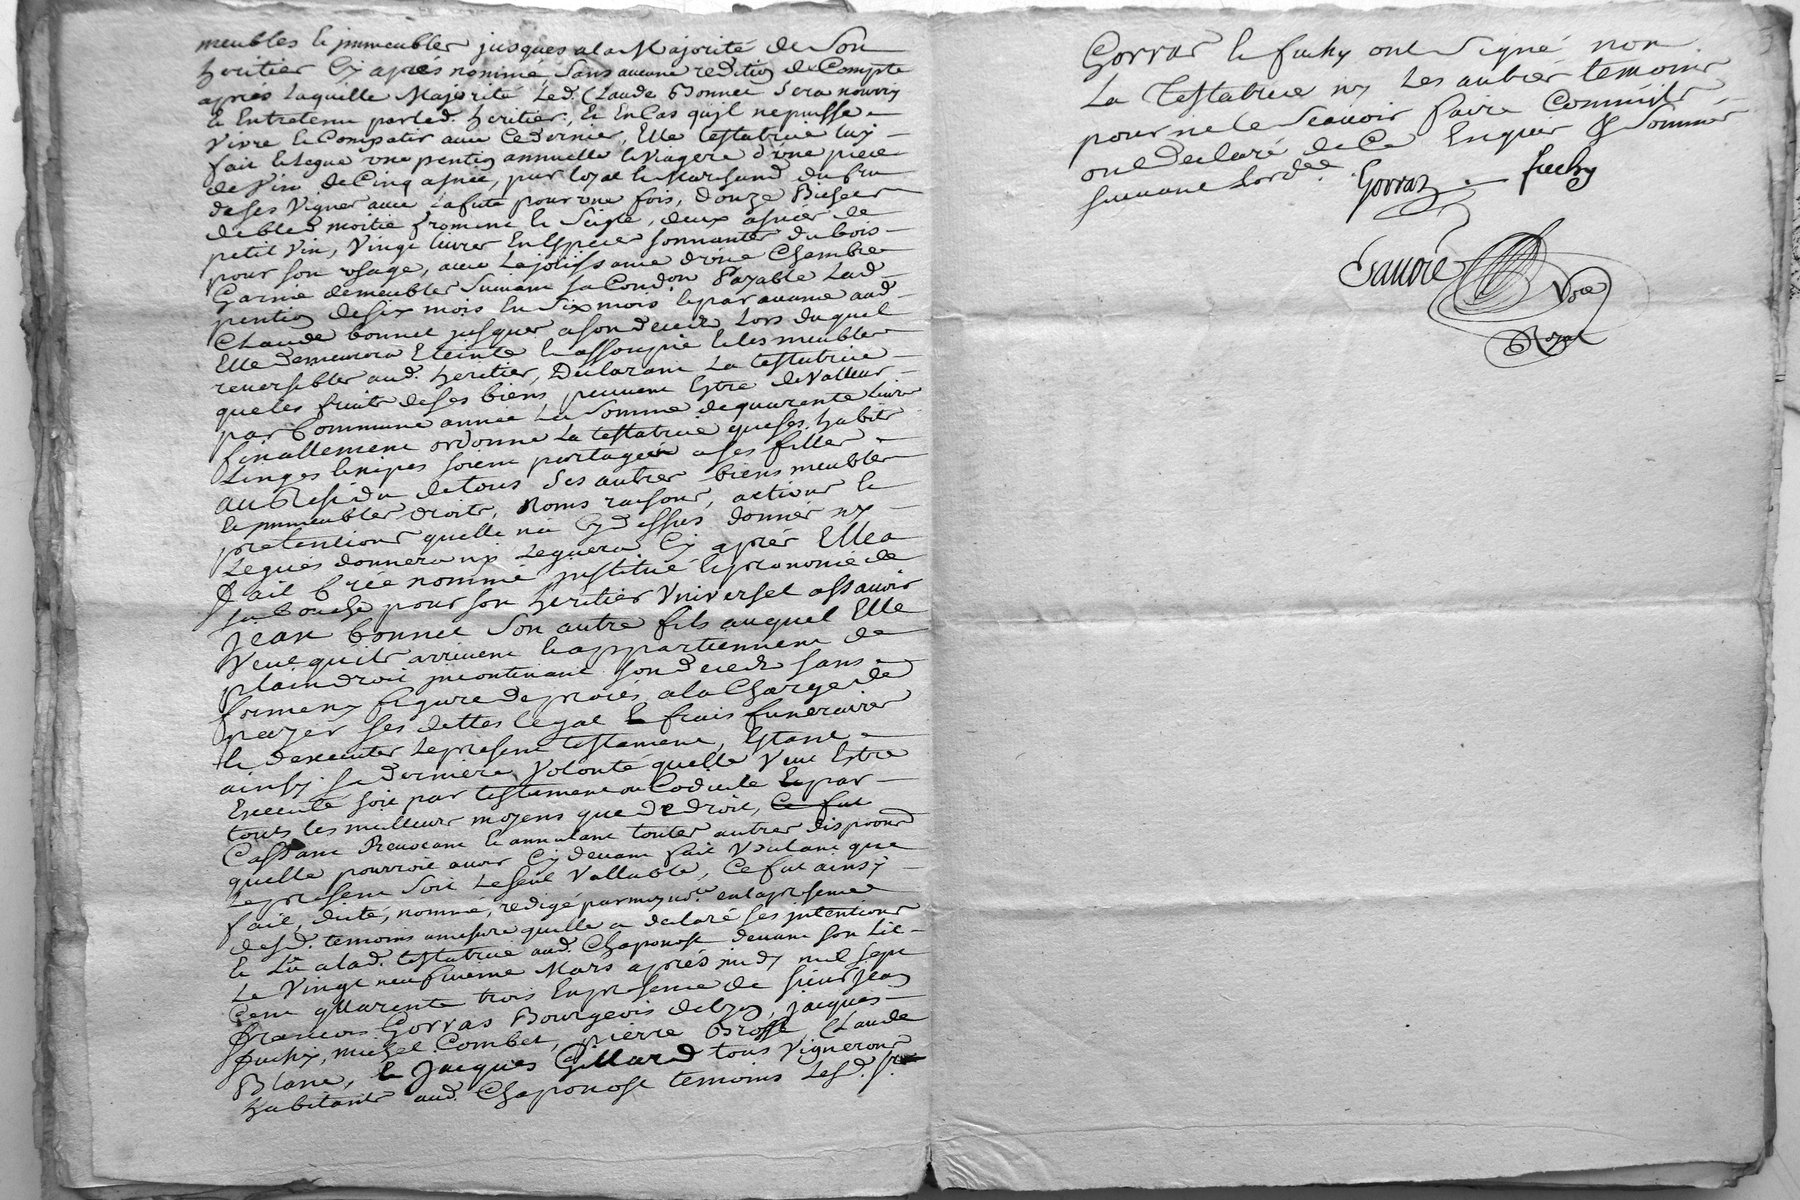 meubles et jmmeubles jusques a la Majorité de Son
heritier Cy aprés nommé, Sans aucune redition de Compte
apres laquelle Majorité Led. Claude Bonnet Sera nourry
et Entretenu par led. heritier, Et En Cas quil ne puisse
Vivre et Compatir avec Ce dernier, Elle testatrice luy
fait et legue une pention annuelle et Viagere d'une piece
de Vin de Cinq asnées, pur loyal et Marchand du cru
de ses Vignes avec la futé pour une fois, douze Bichets
de bled moitié froment et Seigle, deux asnées de
petit Vin, Vingt livres En Especes Sonnantes du bois
pour Son Usage, avec la joüissance d'une Chambre
Garnie de meubles Suivant Sa Condon Payable Lad.
pention de Six mois En Six mois et par avance aud.
Claude bonnet jusques a Son deceds Lors duquel
Elle demeurera Eteinte et assoupie et les meubles
reversibles aud. heritier, Declarant La testatrice
que les fruits de Ses biens peuvent Estre de Valleur
par Commune année La Somme de quarente livres
finallement ordonne La testatrice que ses habits
Linges et nipes soient partagés a Ses filles
au Residu de tous Ses autres biens meubles
et jmmeubles droits, Noms raisons, actions et
pretentions quelle n'a Cy dessus donnés ny
Legués donnera ny Leguera Cy aprés Elle a
fait Crée nommé jnstitué et prononcé de
Sa bouche pour Son heritier Universel assavoir
Jean bonnet Son autre fils auquel Elle
Veut quils arrivent et appartiennent de
plain droit jncontinant Son deceds Sans
forme ny figure de procés a la Charge de
payer Ses dettes legat et frais funeraires
et dexecuter Le present testament, Estant
ainsy Sa derniere Volonté quelle Veut Estre
Executé soit par testament ou Codicile et par
tous les meilleurs moyens que de droit, Ce fut
Cassant Revocant et annulant toutes autres dispoons
quelle pourroit avoir Cy devant fait Voulant que
Le present Soit Le Seul Vallable, Ce fut ainsy
fait, dicté, nommé, redigé par moy nore. en la presence
desd. temoins amesure quelle a declaré Ses jntentions
et Lû a lad. testatrice aud. Chaponost devant Son Lit
Le Vingt neufvieme Mars aprés midy mil Sept
Cent quarente trois En presence de Sieur Jean
francois Gorras Bourgeois de Lyon, Jacques
fuchy, michel Combet, pierre Brosse, Claude
Blanc, et Jacques Gillard tous Vignerons
habitants aud. Chaponost temoins Lesd. Sr.
Gorras et fuchy ont Signé non
La testatrice ny Les autres temoins
pour ne le Scavoir faire Comme ils
ont declaré de Ce Enquis & Sommés
Suivant Lordce.
Gorras fuchy
Nore
Royal